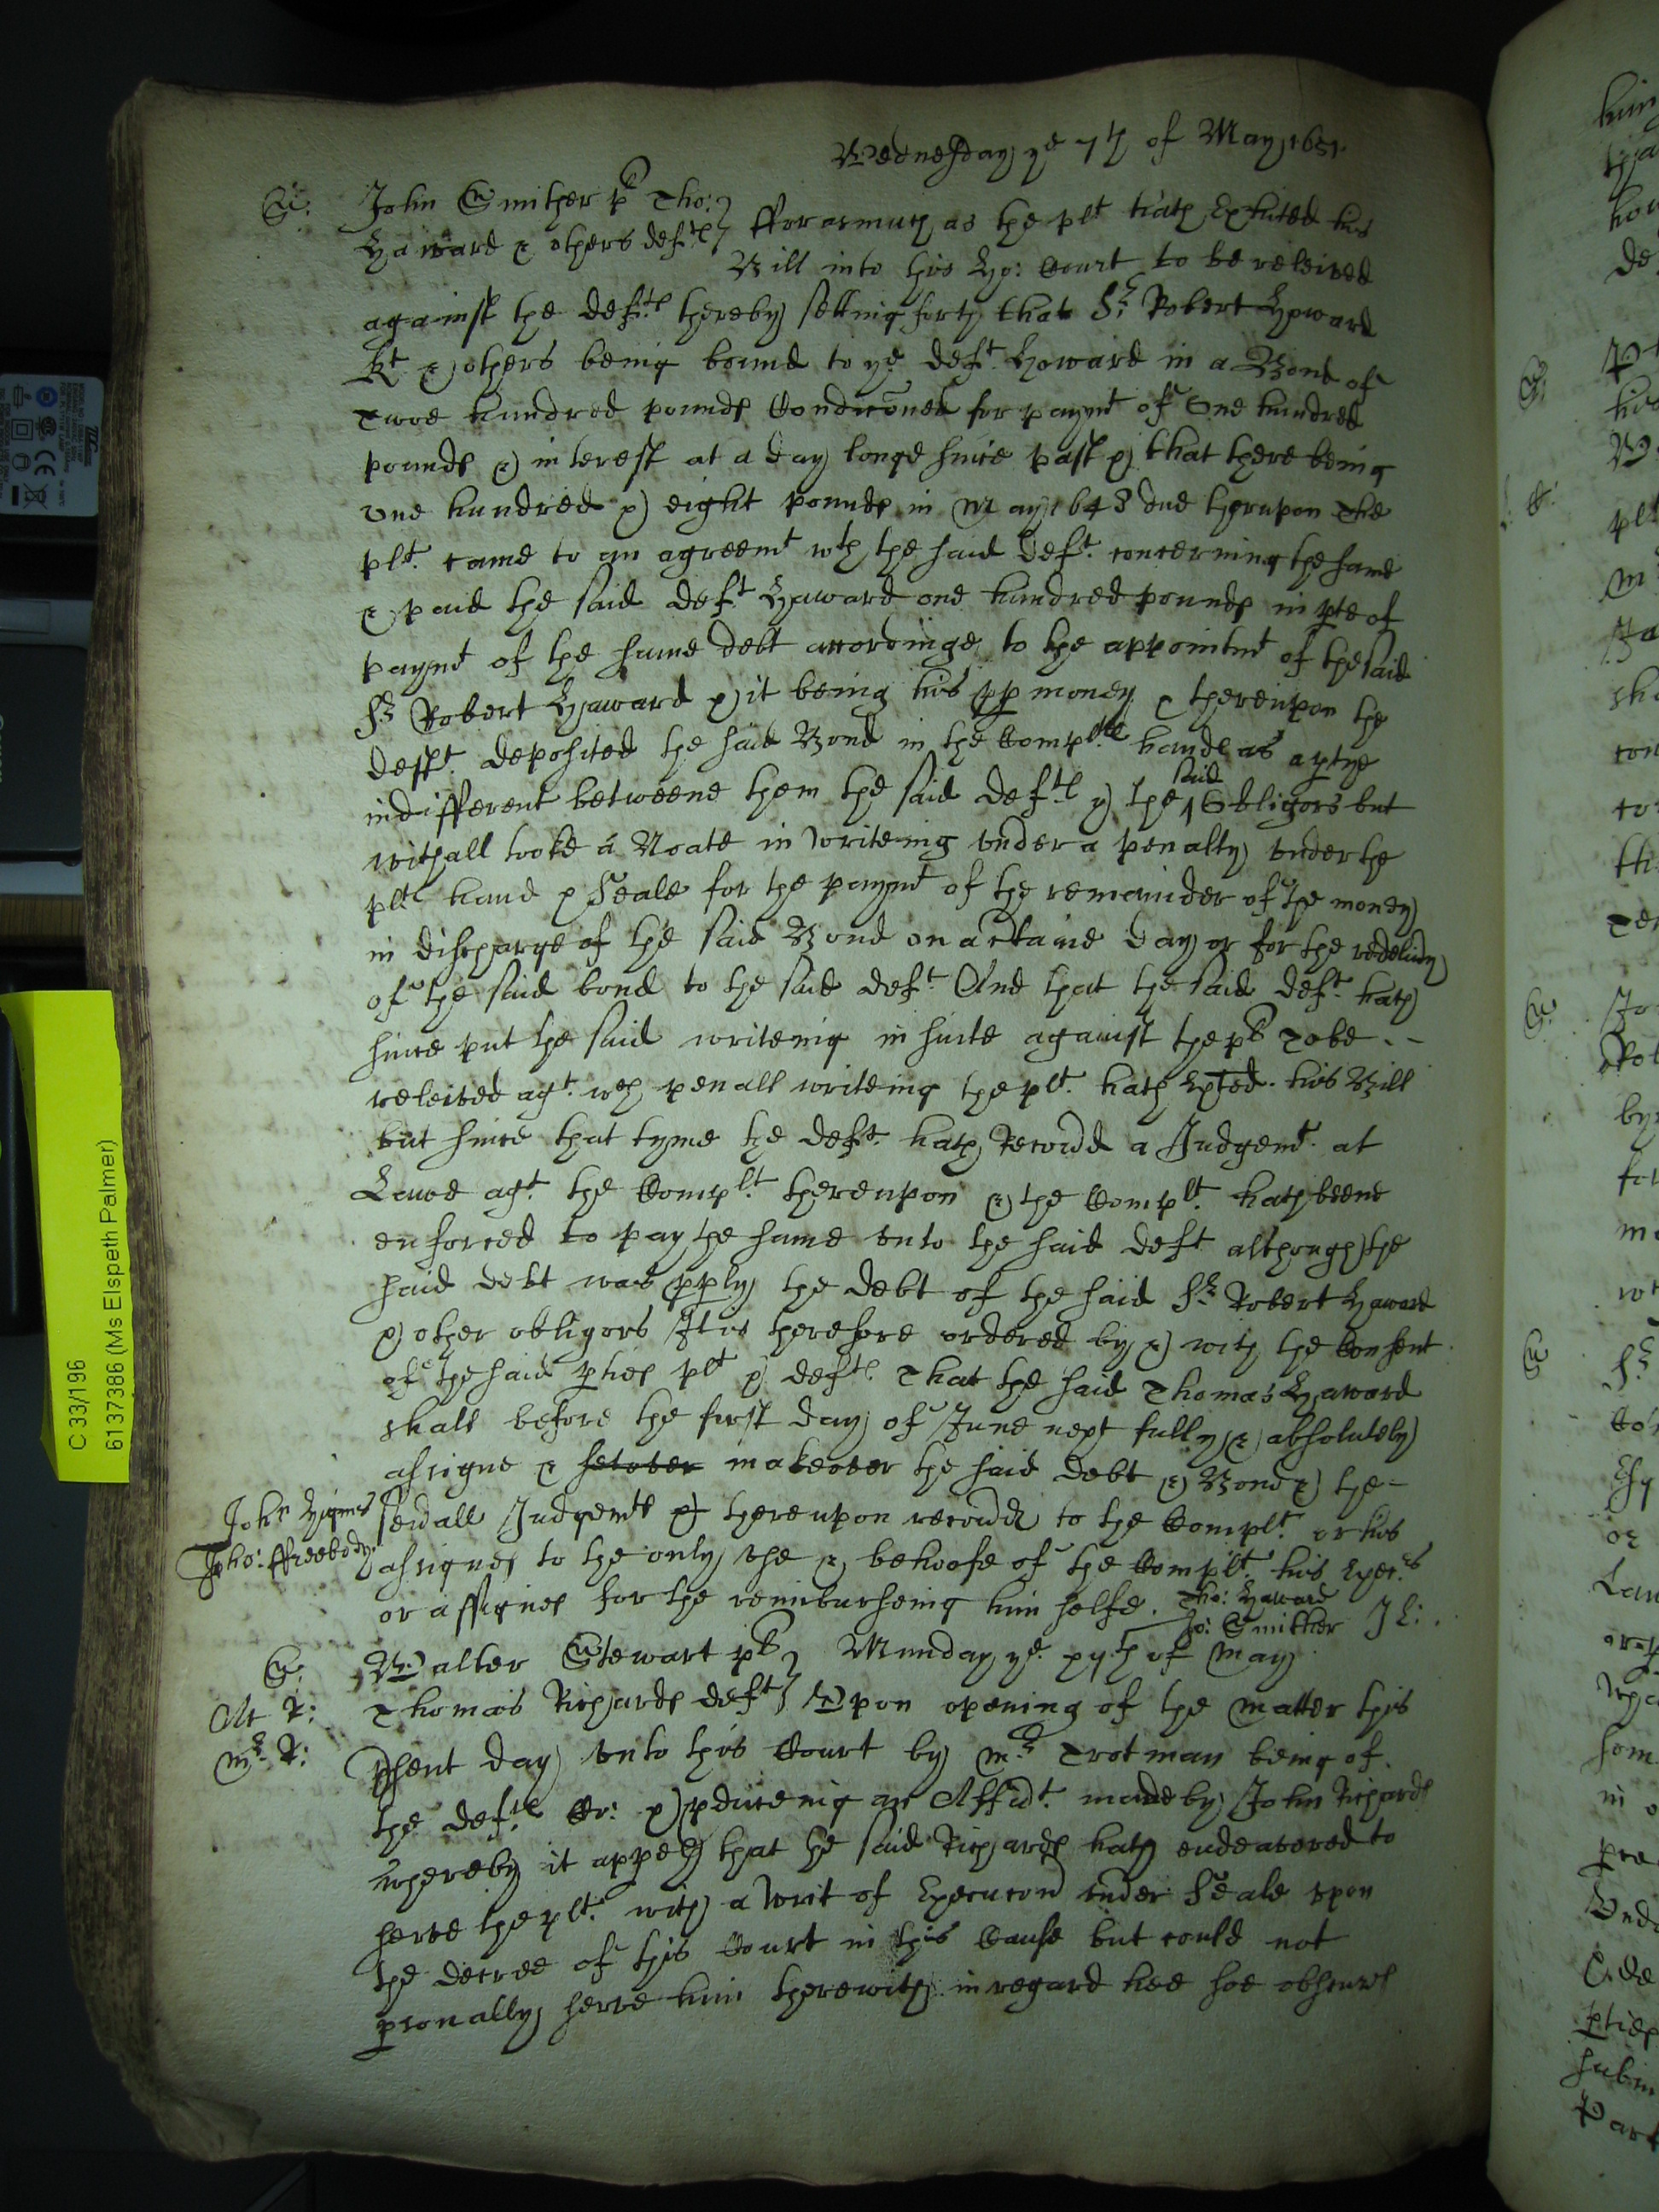 Wednesday ye 7th of May 1651.
S: John Smither plt Tho:
Haward & others defts
fforasmuch as the plt hath Exhited his
Bill into this Ho: Court to be releived
against the defts thereby setting forth that Sr Robert Howard
Kt & others being bound to ye deft Howard in a Bond of
Twoe hundred pounds Condiconed for paymt of One hundred
pounds & interest at a day longe since past & that there being
one hundred & eight pounds in May 1648 due therupon The
plt. came to an agreemt wth the said deft. concerning the same
& paid the said deft Haward one hundred pounds in pte of
paymt of the same debt accordinge to the appointmt of the said
Sr Robert Haward & it being his pp money & thereupon the
defft. deposited the said Bond in the Complts hands as a ptye
indifferent betweene them the said defts & the said Obligors but
withall tooke a Noate in writeing under a penalty under the
plts hand & Seale for the paymt of the remainder of the money
in discharge of the said Bond on a ctaine day or for the redelivy
of the said bond to the said deft. And that the said deft. hath
since put the said writeing in suite against the plt To be
releived agt. wch penall writeing the plt. hath Exted. his Bill
but since that tyme the deft. hath Recovd a Judgemt. at
Lawe agt. the Complt. thereupon & the Complt. hath beene
enforced to pay the same unto the said deft although the
said debt was pply the debt of the said Sr Robert Haward
& other obligors It is therefore ordered by & with the Consent
of the said pties plt & defts. That the said Thomas Haward
shall before the first day of June next fully & absolutely
assigne & setover makeover the said debt & Bond & the
sevall Judgemts & thereupon recovd to the Complt. or his
John
Tho: ffreebody.
assignes to the only use & behoofe of the Complt. his Execrs
or assignes for the reimbursheing him selfe. Tho: Haward
Jo: Smither
S: Walter Stewart plt
Thomas Richards deft
Munday ye. xijth of May
At R:
Upon opening of the matter this
Mr. R:
psent day unto this Court by Mr. Trotman being of
the defts Co: & pduceing an Affidt. made by John Richards
whereby it appeth that he said Richards hath endeavored to
serve the plt. with a writ of Execucon under Seale upon
the decree of this Court in this Cause but could not
psonally serve him therewith in regard hee soe obscures